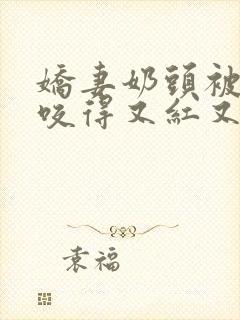 嬌妻奶頭被
咬得又紅又
袁福